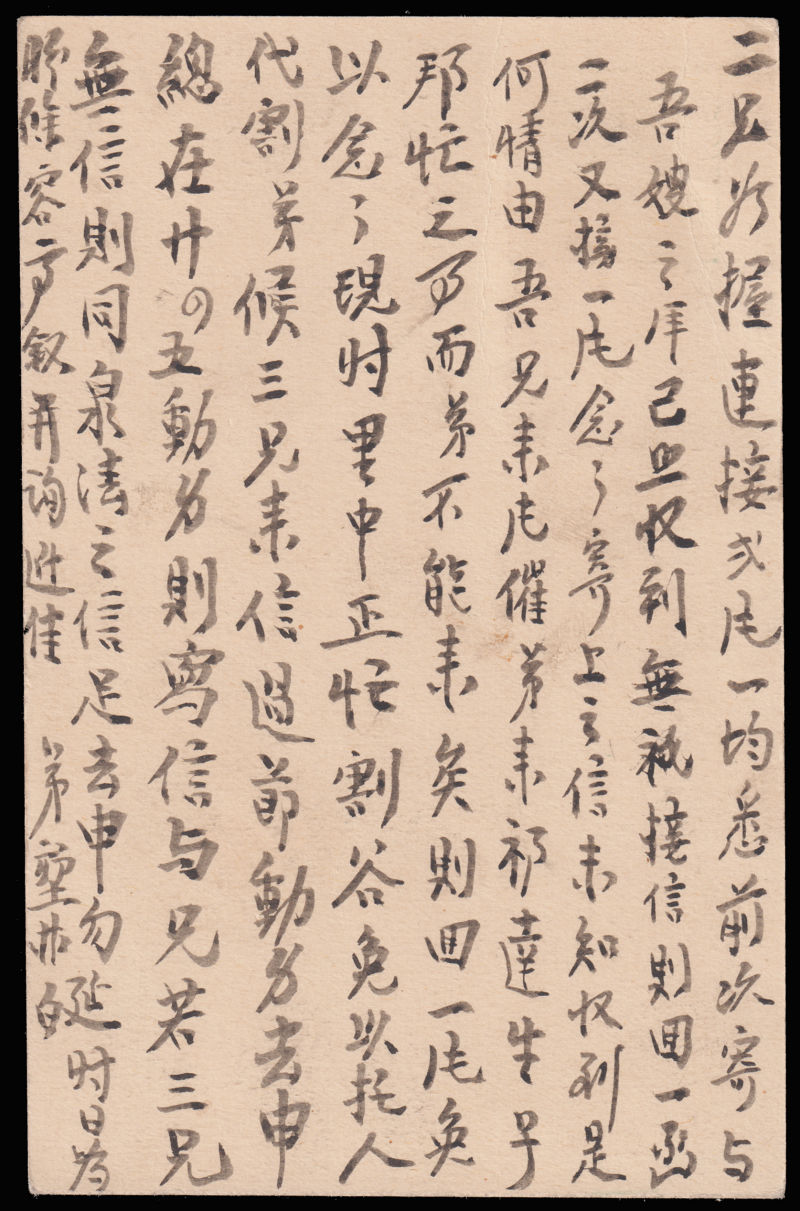 二兄如握連接弍片一均悉前次寄与
吾嫂之洋已旦收到無祗接信則囬一函
二次又接一片念々寄上之信未知收到是
何情由吾兄来片催弟来祁達生子
那忙之而弟不能来矣則囬一片免
以念々現时里中正忙割谷免以托人
代割弟候三兄来信過節動身去申
總在廿四五動身則寫信与兄若三兄
無信則同泉法之信足去申勿延时日為
盼餘容再叙并詢近佳 弟堃林白